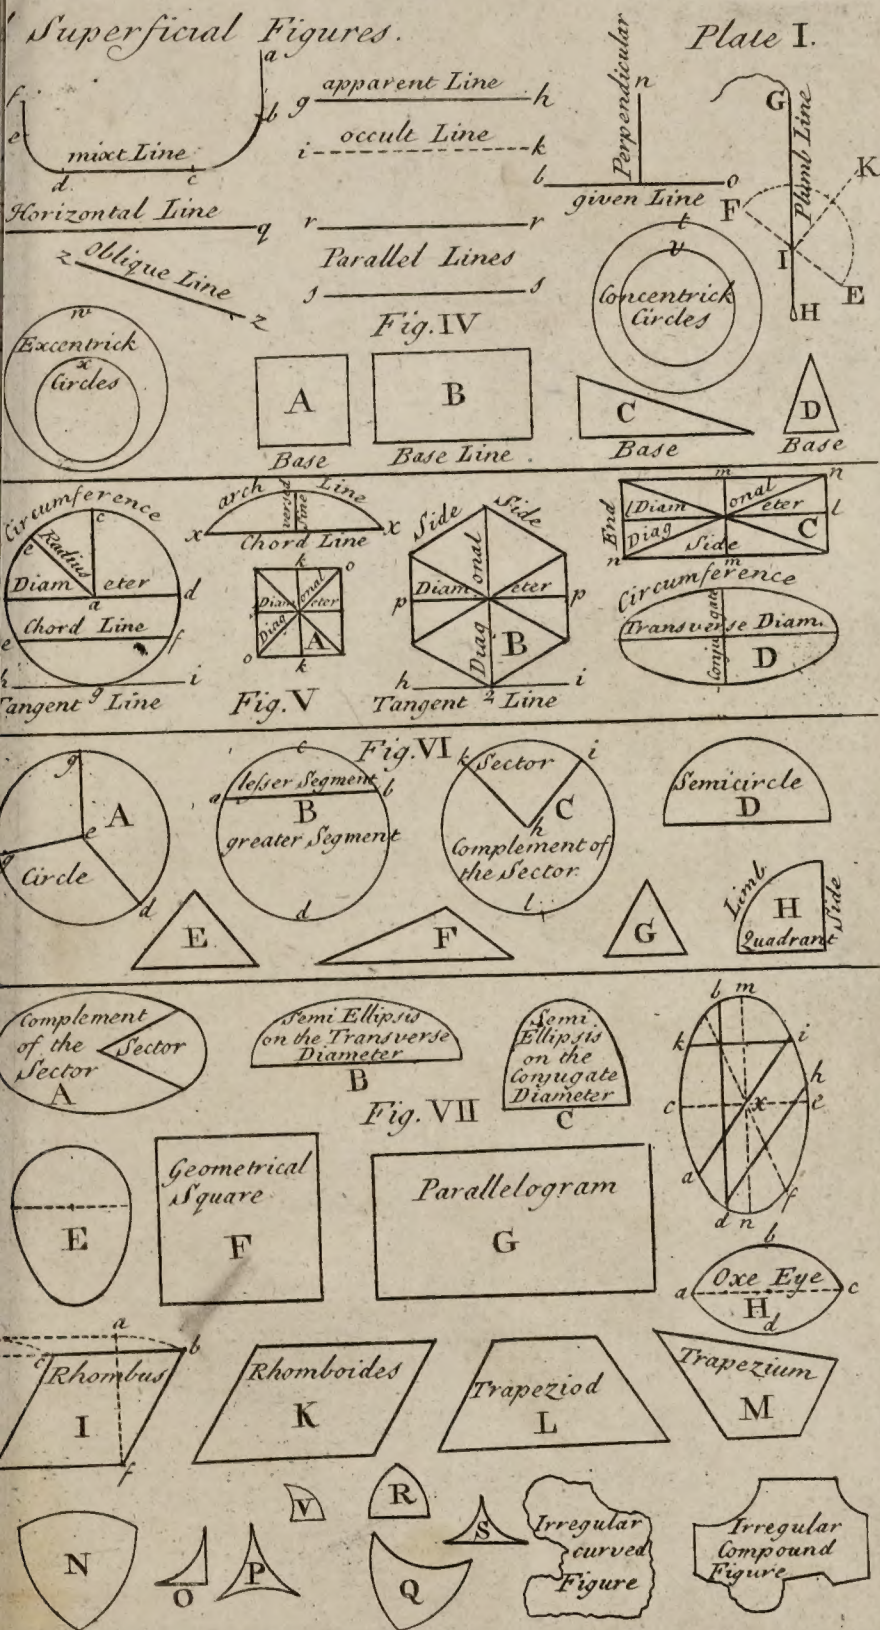 Superficial Figures.
Plate I.
a
f
g apparent Line h
b
e
i occult Line k
mixt Line
d c
Perpendicular
n
G
Plumb Line
K
b o
given Line
F
I
E
H
Horizontal Line q
r r
Parallel Lines
s s
z Oblique Line z
t
v
Concentrick
Circles
Fig. IV
w
Excentrick
x
Circles
A
Base
B
Base Line.
C
Base
D
Base
Circumference
c
e
Radius
Diam eter
a d
e Chord Line f
h i
g
Tangent Line
arch Line
versed
sine
x x
Chord Line
k o
Diagonal
Diam eter
A
o k
Fig. V
Side Side
Diagonal
p Diam eter p
B
h i
Tangent Line
m n
End
l Diam eter l
Diagonal
C
n Side m
Circumference
Transverse Diam.
Conjugate
D
Fig. VI
g
A
e
Circle
d
c
lesser Segment
a b
B
greater Segment
d
k i
Sector
C
h
Complement of
the Sector.
l
Semicircle
D
E
F
G
Limb
H
Side
Quadrant
Complement
of the
Sector
Sector
A
Semi Ellipsis
on the Transverse
Diameter
B
Semi
Ellipsis
on the
Conjugate
Diameter
C
Fig. VII
b m
k i
h
c x e
a
f
d n
E
Geometrical
Square
F
Parallelogram
G
b
Oxe Eye
a c
H
d
a
c b
Rhombus
I
f
Rhomboides
K
Trapeziod
L
Trapezium
M
N
O
P
V
R
Q
S
Irregular
curved
Figure
Irregular
Compound
Figure